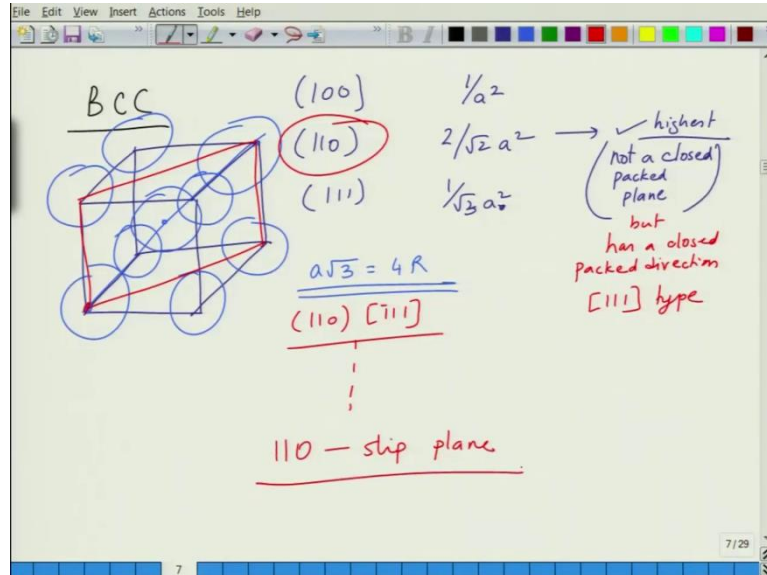 File Edit View Insert Actions Tools Help
B I
BCC
(100) 1/a²
(110) 2/√2 a² → ✓ highest
(not a closed
packed
plane)
(111) 1/√3 a²
but
has a closed
packed direction
[111] type
a√3 = 4R
(110) [1̅11]
110 — slip plane
7/29
7